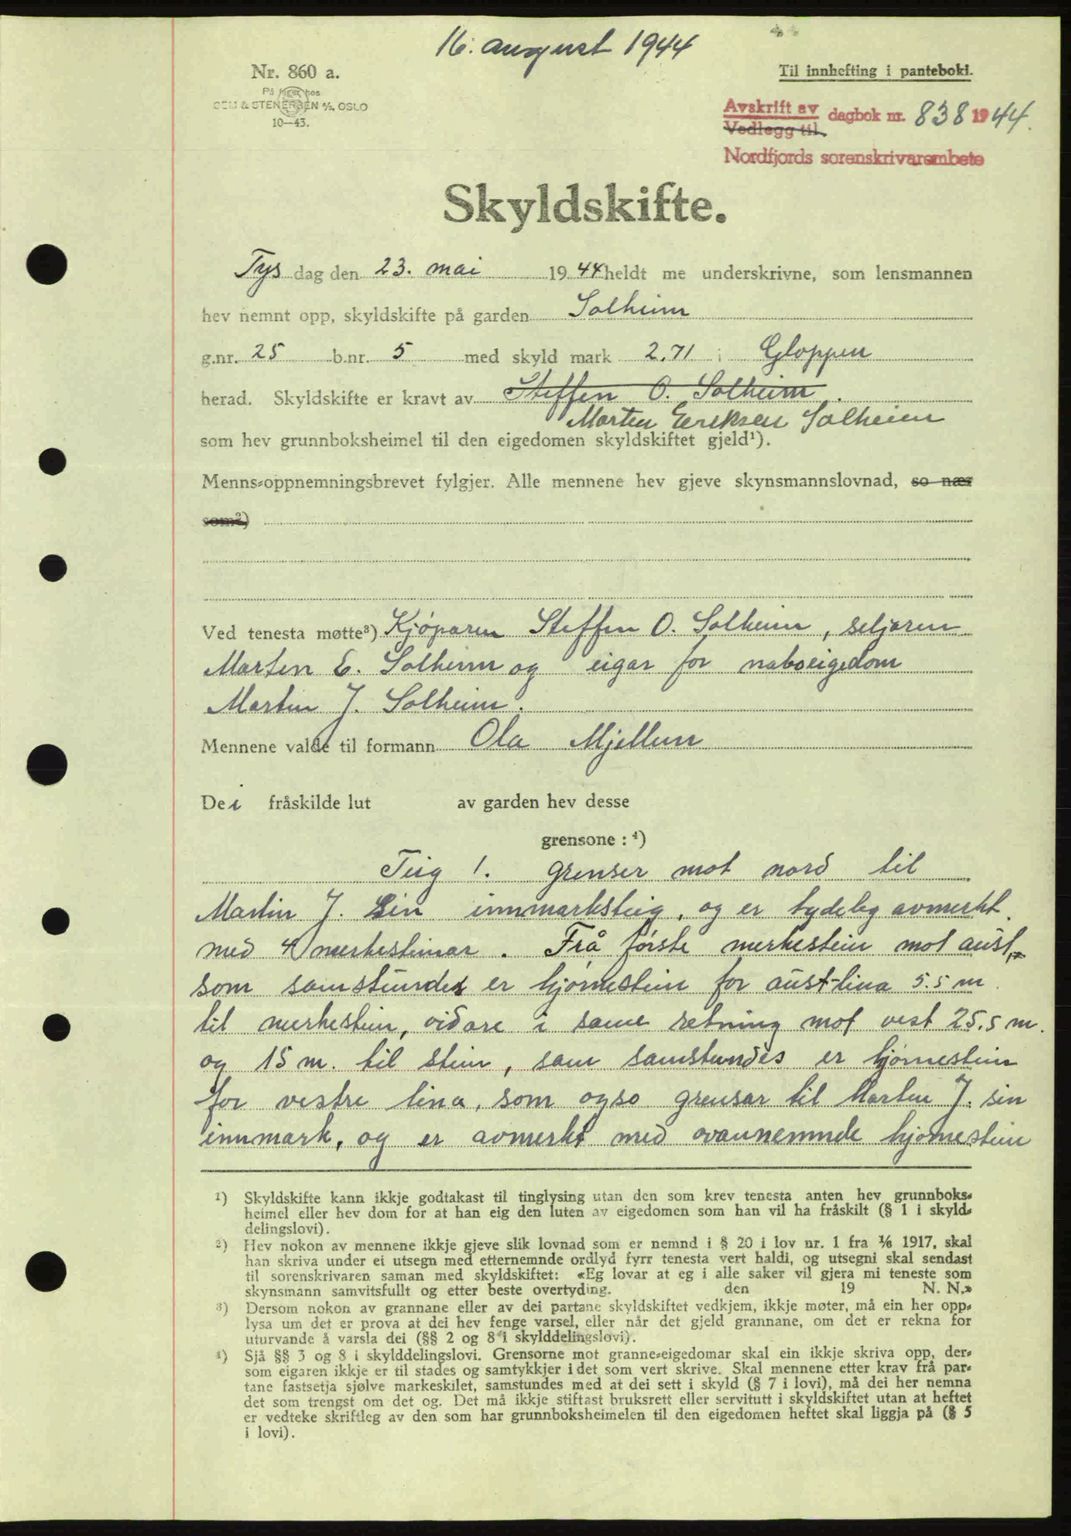 16. august 1944
Nr. 860 a.
På lager hos
SEM & STENERSEN A/S, OSLO
10—43.
Til innhefting i pantebok1.
Avskrift av
Vedlegg til
dagbok nr. 838 1944.
Nordfjords sorenskrivarembete
Skyldskifte.
Tys dag den 23. mai 1944 heldt me underskrivne, som lensmannen
hev nemnt opp, skyldskifte på garden Solheim
g.nr. 25 b.nr. 5 med skyld mark 2,71 i Gloppen
herad. Skyldskifte er kravt av Steffen O. Solheim.
Marten Eriksen Solheim
som hev grunnboksheimel til den eigedomen skyldskiftet gjeld¹).
Menns-oppnemningsbrevet fylgjer. Alle mennene hev gjeve skynsmannslovnad, so nær
som²)
Ved tenesta møtte³) Kjøparen Steffen O. Solheim, seljaren
Marten E. Solheim og eigar for naboeigedom
Martin J. Solheim.
Mennene valde til formann Ola Mjellem
Dei fråskilde lut av garden hev desse
grensone : ⁴)
Teig 1. grenser mot nord til
Martin J. sin innmarksteig, og er tydeleg avmerkt
med 4 merkesteinar. Frå første merkestein mot aust,
som samstundes er hjørnestein for aust-lina 5.5 m
til merkestein, vidare i same retning mot vest 25.5 m.
og 15 m. til stein, som samstundes er hjørnestein
for vestre lina, som ogso grensar til Martin J. sin
innmark, og er avmerkt med ovannemnde hjørnestein
¹) Skyldskifte kann ikkje godtakast til tinglysing utan den som krev tenesta anten hev grunnboks-
heimel eller hev dom for at han eig den luten av eigedomen som han vil ha fråskilt (§ 1 i skyld-
delingslovi).
²) Hev nokon av mennene ikkje gjeve slik lovnad som er nemnd i § 20 i lov nr. 1 fra 1/6 1917, skal
han skriva under ei utsegn med etternemnde ordlyd fyrr tenesta vert haldi, og utsegni skal sendast
til sorenskrivaren saman med skyldskiftet: «Eg lovar at eg i alle saker vil gjera mi teneste som
skynsmann samvitsfullt og etter beste overtyding. den 19 N. N.»
³) Dersom nokon av grannane eller av dei partane skyldskiftet vedkjem, ikkje møter, må ein her opp-
lysa um det er prova at dei hev fenge varsel, eller når det gjeld grannane, om det er rekna for
uturvande å varsla dei (§§ 2 og 8 i skylddelingslovi).
⁴) Sjå §§ 3 og 8 i skylddelingslovi. Grensorne mot granne-eigedomar skal ein ikkje skriva opp, der-
som eigaren ikkje er til stades og samtykkjer i det som vert skrive. Skal mennene etter krav frå par-
tane fastsetja sjølve markeskilet, samstundes med at dei sett i skyld (§ 7 i lovi), må dei her nemna
det som trengst om det og. Det må ikkje stiftast bruksrett eller servitutt i skyldskiftet utan at heftet
er vedteke skriftleg av den som har grunnboksheimelen til den eigedomen heftet skal liggja på (§ 5
i lovi).